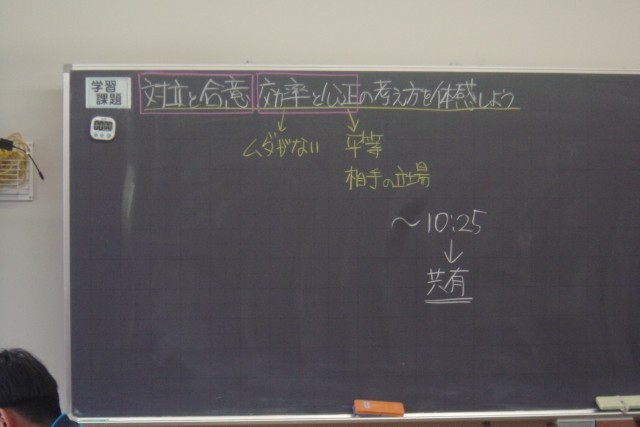 学習
課題
対立と合意 効率と公正の考え方を体感しよう
ムダがない 平等
相手の立場
～10:25
↓
共有